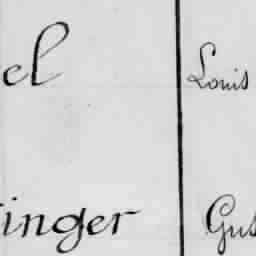 el Louis
inger Gus